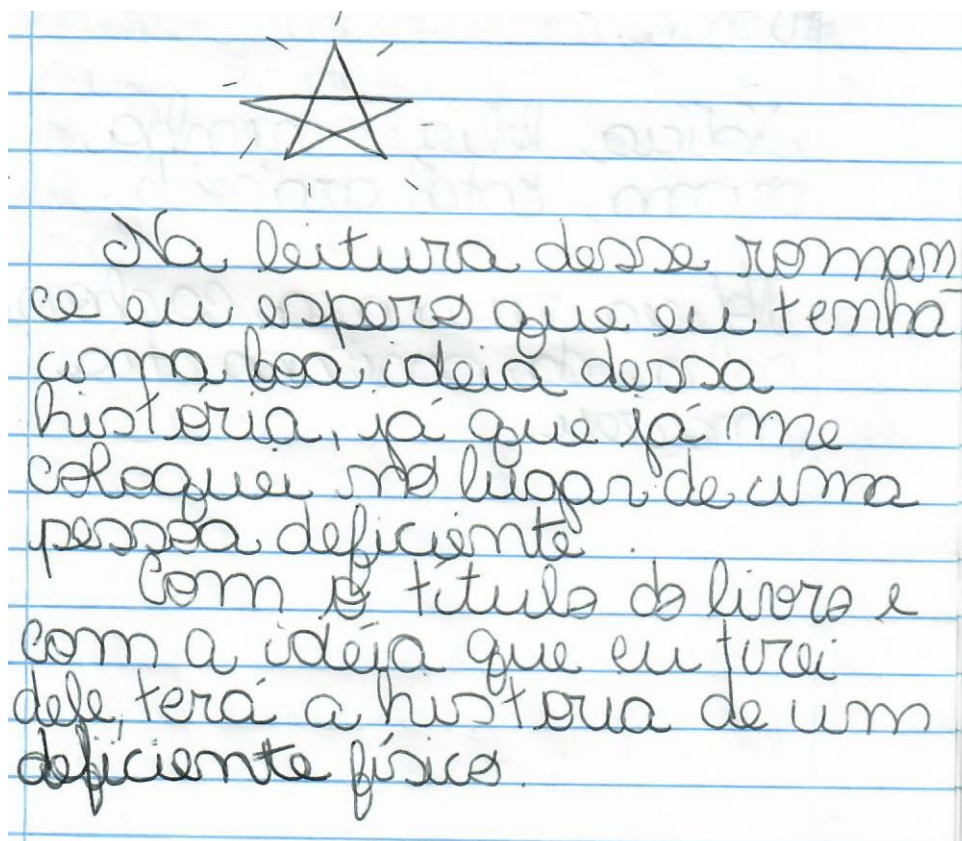 Na leitura desse roman
ce eu espero que eu tenha
uma boa ideia dessa
história, já que já me
coloquei no lugar de uma
pessoa deficiente.
Com o título do livro e
com a idéia que eu tirei
dele, terá a história de um
deficiente físico.